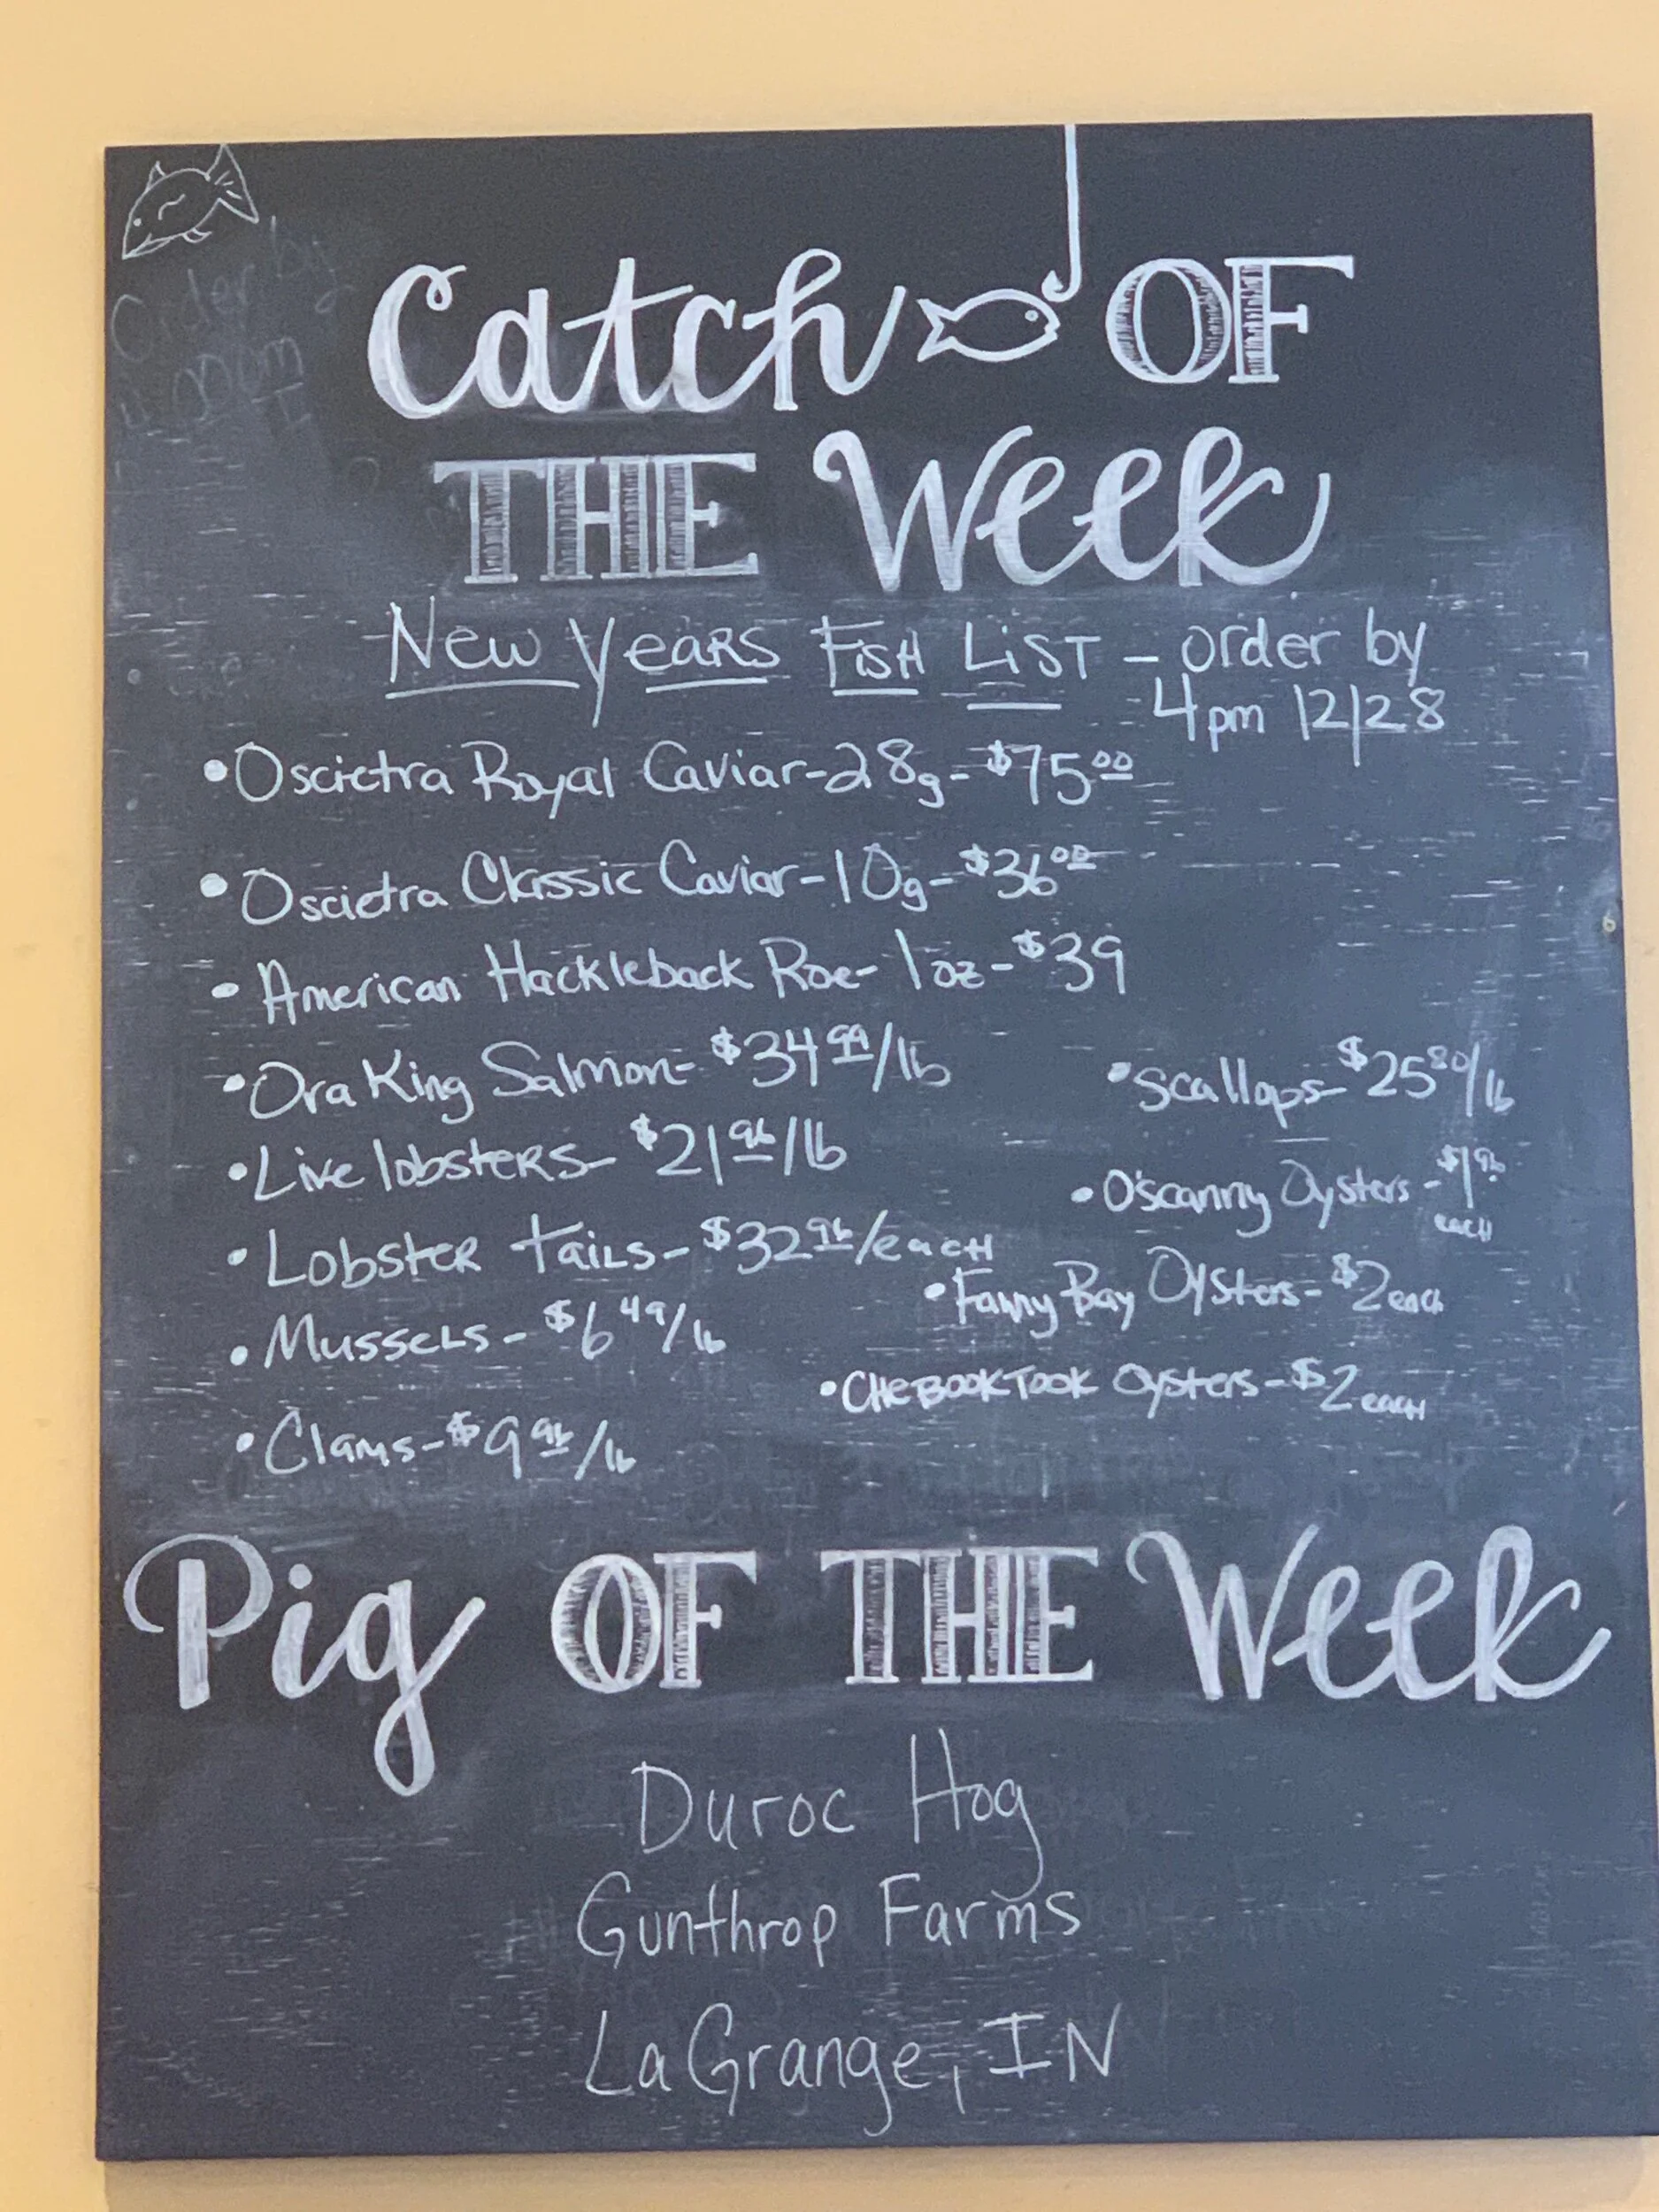 Catch OF
THE Week
New Years Fish List - order by
4pm 12/28
• Oscietra Royal Caviar - 28g - $75.00
• Oscietra Classic Caviar - 10g - $36.00
• American Hackleback Roe - 1oz - $39
• Ora King Salmon - $34.99/lb
• Live lobsters - $21.96/lb
• Lobster tails - $32.96/each
• Mussels - $6.49/lb
• Clams - $9.96/lb
• Scallops - $25.80/lb
• O'scanny Oysters - $1.96
each
• Fanny Bay Oysters - $2 each
• Chebooktook Oysters - $2 each
Pig OF THE Week
Duroc Hog
Gunthrop Farms
LaGrange, IN